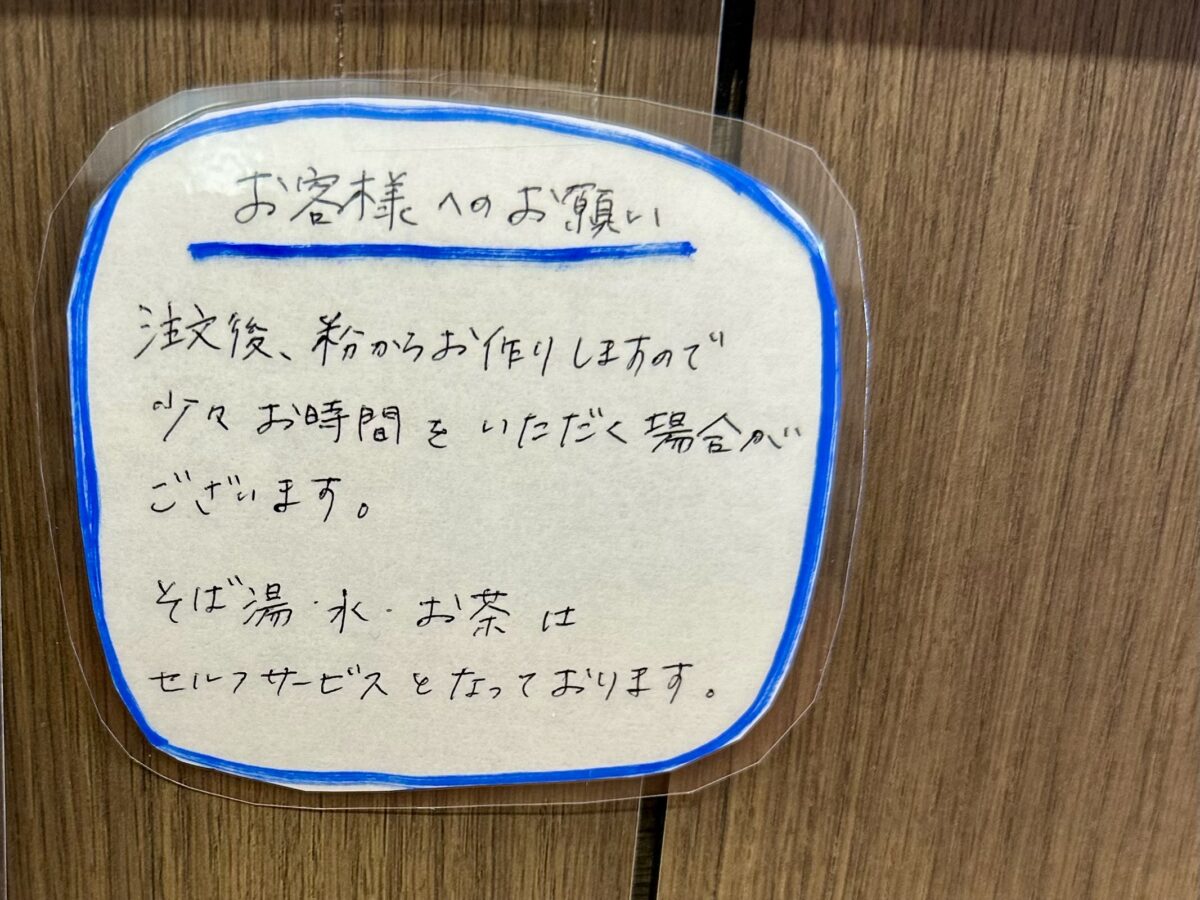 お客様へのお願い
注文後、粉からお作りしますので
少々お時間をいただく場合が
ございます。
そば湯・水・お茶は
セルフサービスとなっております。